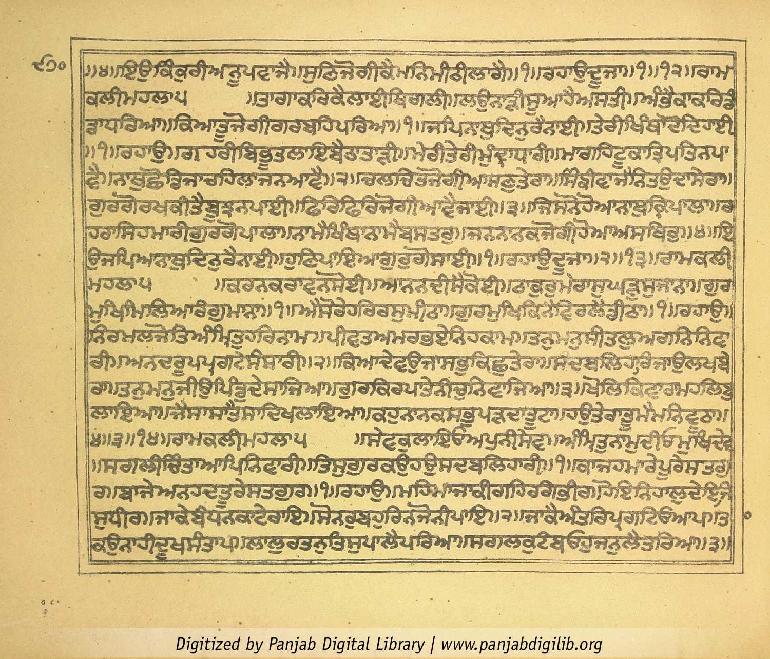 ੮੭੦
॥੪॥ਇਉਕਿੰਕੁਰੀਅਨੁਪਟਾਜੈ॥ਸੁਣਿਜੋਗੀਕੈਮਨਿਮੀਠੀਲਾਗੈ॥੧॥ਰਹਾਉਦੂਜਾ॥੧॥੧੨॥ਰਾਮ
ਕਲੀਮਹਲਾ੫ ॥ਤਾਗਾਕਰਿਕੈਲਾਈਥਿਗਲੀ॥ਲਉਨਾੜੀਸੂਆਹੈਅਸਤੀ॥ਅੰਭੈਕਾਕਰਿਡੰ
ਡਾਧਰਿਆ॥ਕਿਆਤੂਜੋਗੀਗਰਬਹਿਪਰਿਆ॥੧॥ਜਪਿਨਾਥੁਦਿਨੁਰੈਨਾਈ॥ਤੇਰੀਖਿੰਥਾਦੋਦਿਹਾਈ
॥੧॥ਰਹਾਉ॥ਗਹਰੀਬਿਭੂਤਲਾਇਬੈਠਾਤਾੜੀ॥ਮੇਰੀਤੇਰੀਮੁੰਦ੍ਰਾਧਾਰੀ॥ਮਾਗਹਿਟੂਕਾਤ੍ਰਿਪਤਿਨਪਾ
ਵੈ॥ਨਾਥੁਛੋਡਿਜਾਚਹਿਲਾਜਨਆਵੈ॥੨॥ਚਲਚਿਤਜੋਗੀਆਸਣੁਤੇਰਾ॥ਸਿੰਙੀਵਾਜੈਨਿਤਉਦਾਸੇਰਾ॥
ਗੁਰਗੋਰਖਕੀਤੈਬੂਝਨਪਾਈ॥ਫਿਰਿਫਿਰਿਜੋਗੀਆਵੈਜਾਈ॥੩॥ਜਿਸਨੋਹੋਆਨਾਥੁਕ੍ਰਿਪਾਲਾ॥ਰ
ਹਰਾਸਿਹਮਾਰੀਗੁਰਗੋਪਾਲਾ॥ਨਾਮੈਖਿੰਥਾਨਾਮੈਬਸਤਰੁ॥ਜਨਨਾਨਕਜੋਗੀਹੋਆਅਸਥਿਰੁ॥੪॥ਇ
ਉਜਪਿਆਨਾਥੁਦਿਨੁਰੈਨਾਈ॥ਹੁਣਿਪਾਇਆਗੁਰੁਗੋਸਾਈ॥੧॥ਰਹਾਉਦੂਜਾ॥੨॥੧੩॥ਰਾਮਕਲੀ
ਮਹਲਾ੫ ॥ਕਰਨਕਰਾਵਨਸੋਈ॥ਆਨਨਦੀਸੈਕੋਈ॥ਠਾਕੁਰੁਮੇਰਾਸੁਘੜੁਸੁਜਾਨਾ॥ਗੁਰ
ਮੁਖਿਮਿਲਿਆਰੰਗੁਮਾਨਾ॥੧॥ਐਸੋਰੇਹਰਿਰਸੁਮੀਠਾ॥ਗੁਰਮੁਖਿਕਿਨੈਵਿਰਲੈਡੀਠਾ॥੧॥ਰਹਾਉ॥
ਨਿਰਮਲਜੋਤਿਅੰਮ੍ਰਿਤੁਹਰਿਨਾਮ॥ਪੀਵਤਅਮਰਭਏਨਿਹਕਾਮ॥ਤਨੁਮਨੁਸੀਤਲੁਅਗਨਿਨਿਵਾ
ਰੀ॥ਅਨਦਰੂਪਪ੍ਰਗਟੇਸੰਸਾਰੀ॥੨॥ਕਿਆਦੇਵਉਜਾਸਭੁਕਿਛੁਤੇਰਾ॥ਸਦਬਲਿਹਾਰਿਜਾਉਲਖਬੇ
ਰਾ॥ਤਨੁਮਨੁਜੀਉਪਿੰਡੁਦੇਸਾਜਿਆ॥ਗੁਰਕਿਰਪਾਤੇਨੀਚੁਨਿਵਾਜਿਆ॥੩॥ਖੋਲਿਕਿਵਾਰਾਮਹਲਿਬੁ
ਲਾਇਆ॥ਜੈਸਾਸਾਤੈਸਾਦਿਖਲਾਇਆ॥ਕਹੁਨਾਨਕਸਭੁਪੜਦਾਤੂਟਾ॥ਹਉਤੇਰਾਤੂਮੈਮਨਿਵੂਠਾ॥
੪॥੩॥੧੪॥ਰਾਮਕਲੀਮਹਲਾ੫ ॥ਸੇਵਕੁਲਾਇਓਅਪੁਨੀਸੇਵ॥ਅੰਮ੍ਰਿਤੁਨਾਮੁਦੀਓਮੁਖਿਦੇਵ
॥ਸਗਲੀਚਿੰਤਾਆਪਿਨਿਵਾਰੀ॥ਤਿਸੁਗੁਰਕਉਹਉਸਦਬਲਿਹਾਰੀ॥੧॥ਕਾਜਹਮਾਰੇਪੂਰੇਸਤਗੁ
ਰ॥ਬਾਜੇਅਨਹਦਤੂਰੇਸਤਗੁਰ॥੧॥ਰਹਾਉ॥ਮਹਿਮਾਜਾਕੀਗਹਿਰਗੰਭੀਰ॥ਹੋਇਨਿਹਾਲੁਦੇਇਜਿ
ਸੁਧੀਰ॥ਜਾਕੇਬੰਧਨਕਾਟੇਰਾਇ॥ਸੋਨਰੁਬਹੁਰਿਨਜੋਨੀਪਾਇ॥੨॥ਜਾਕੈਅੰਤਰਿਪ੍ਰਗਟਿਓਆਪ॥ਤਾ
ਕਉਨਾਹੀਦੂਖਸੰਤਾਪ॥ਲਾਲੁਰਤਨੁਤਿਸੁਪਾਲੈਪਰਿਆ॥ਸਗਲਕੁਟੰਬਓਹੁਜਨੁਲੈਤਰਿਆ॥੩॥
Digitized by Panjab Digital Library | www.panjabdigilib.org